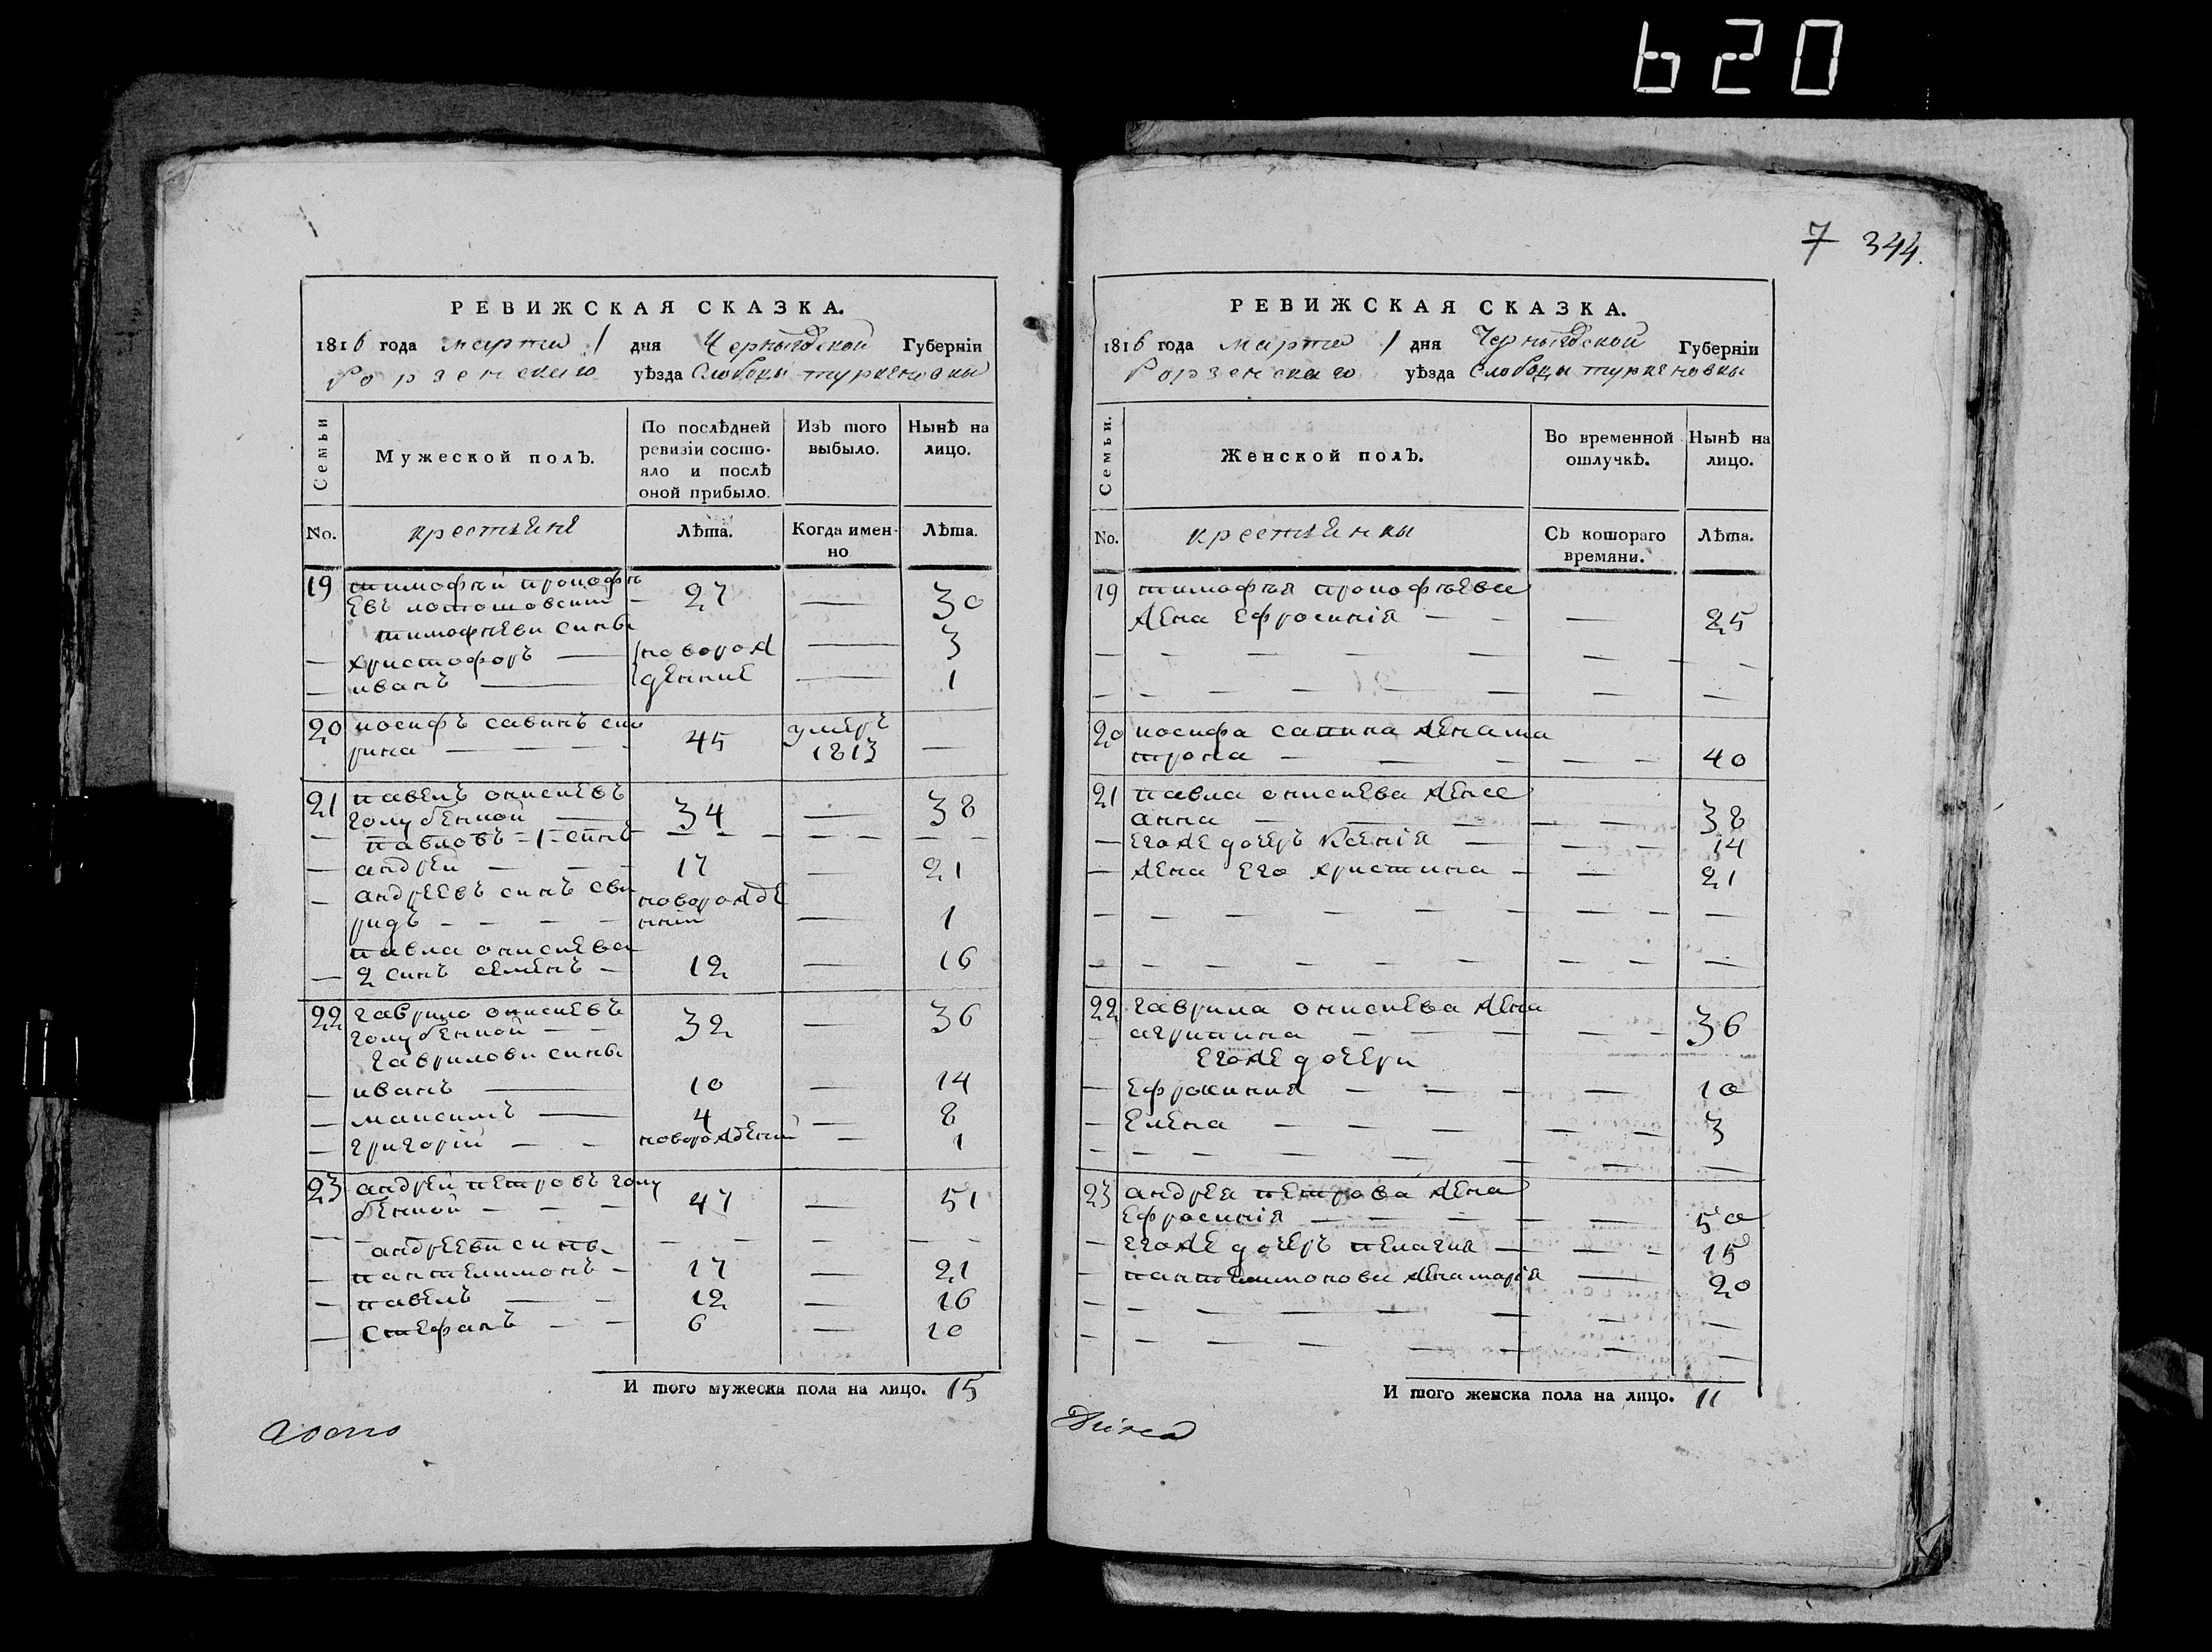 620
7 344.
РЕВИЖСКАЯ СКАЗКА.
1816 года марта 1 дня Черниговской Губерніи
уѣзда Слободы туркеновки
Семьи
Мужеской полъ.
По послѣдней ревизіи состояло и послѣ оной прибыло.
Изъ того выбыло.
Нынѣ на лицо.
No.
крестьяне
Лѣта.
Когда именно
Лѣта.
19 тимофѣй прокофѣ
евъ лотошовский — 27 — 30
тимофѣеви сини
— христофоръ — новорож — 3
— иванъ — денние — 1
20 иосифъ савинъ ски умеръ
рика — — — 45 1813 —
21 павелъ онисиевъ
голубенкой — 34 — 38
— павловъ - 1 - синъ — — — — — —
— андрей — — — 17 — 21
— андреевъ синъ сви новорожде
ридъ — — — — нний — 1
павла онисиева
— 2 синъ семенъ — 12 — 16
22 гаврило онисиевъ
голубенкой — — 32 — 36
гаврилови сини
— иванъ — 10 — 14
— максимъ — 4 — 8
— григорій — — новорождений — 1
23 андрей петровъ голу
бенкой — — — 47 — 51
— андрееви сини — — — — —
— пантелимонъ — 17 — 21
— павелъ — — 12 — 16
— стефанъ — — 6 — 10
И того мужеска пола на лицо. 15
РЕВИЖСКАЯ СКАЗКА.
1816 года марта 1 дня Черниговской Губерніи
уѣзда Слободы туркеновки
Семьи.
Женской полъ.
Во временной отлучкѣ.
Нынѣ на лицо.
No.
крестьянки
Съ котораго времяни.
Лѣта.
19 тимофѣя прокофѣева
жена ефросинія — — — 25
— — — — — — — — —
— — — — — — — —
20 иосифа савина жена ма
трона — — — — — 40
21 павла онисиева жена
анна — — — — — 38
— егоже дочеръ ксенія — — — 14
— жена его христина — — — 21
— — — — — — — — —
— — — — — — — — —
22 гаврила онисиева жена
агрипина — — — — — 36
егоже дочери
— ефросиния — — — — 10
— елена — — — — — — 3
— — — — — — — —
23 андрея петрова жена
ефросинія — — — — — 50
— егоже дочеръ пелагия — — — 15
— пантелимонова жена марія — 20
— — — — — — — —
— — — — — — — —
И того женска пола на лицо. 11